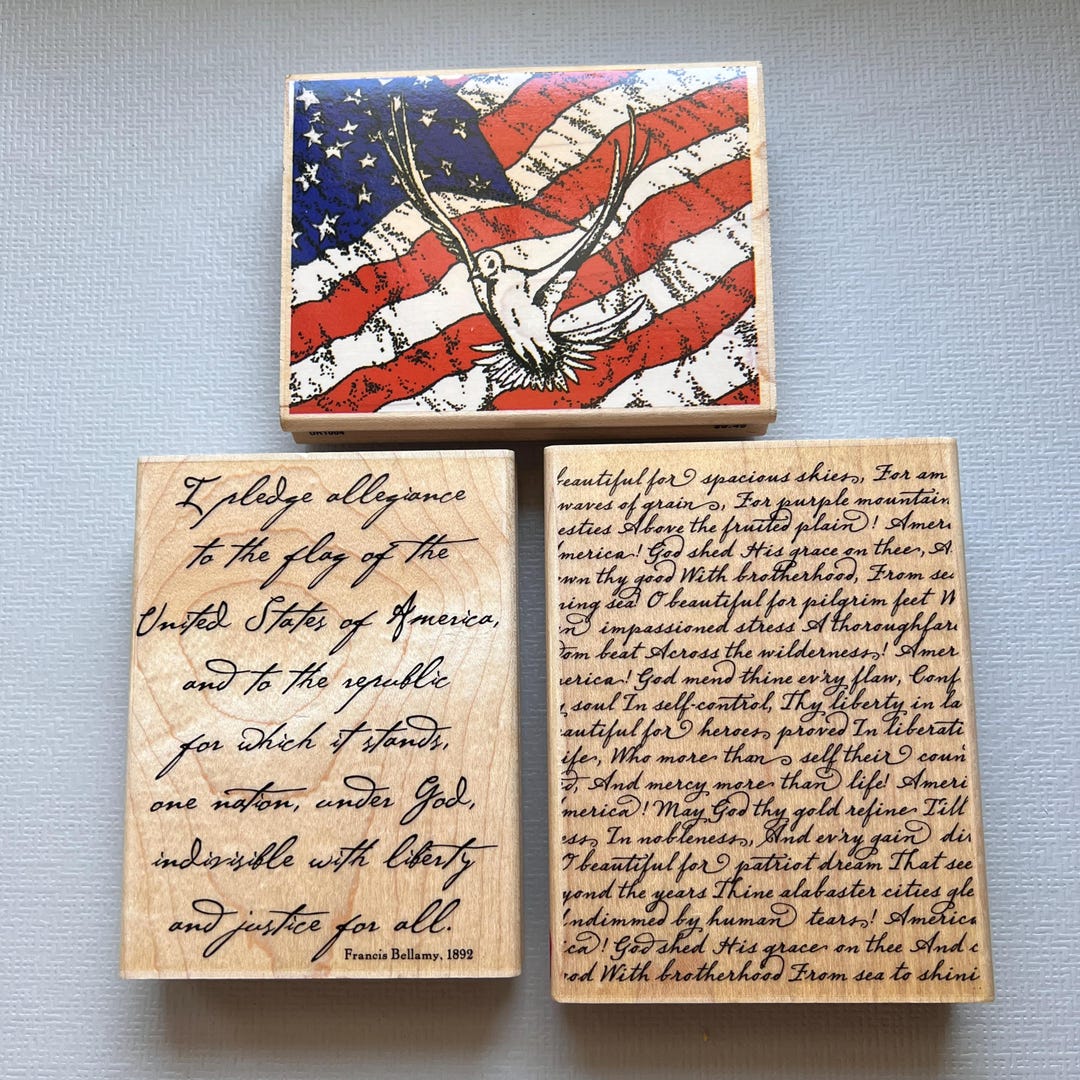 I pledge allegiance
to the flag of the
United States of America,
and to the republic
for which it stands,
one nation, under God,
indivisible with liberty
and justice for all.
Francis Bellamy, 1892
beautiful for spacious skies, For am
waves of grain, For purple mountain
esties Above the fruited plain! Ameri
merica! God shed His grace on thee, A
wn thy good With brotherhood, From sea
ning sea O beautiful for pilgrim feet W
n impassioned stress A thoroughfare
om beat Across the wilderness! Amer
erica! God mend thine ev'ry flaw, Conf
y soul In self-control, Thy liberty in la
eautiful for heroes proved In liberati
ife, Who more than self their coun
d, And mercy more than life! Ameri
merica! May God thy gold refine Till
ess In nobleness, And ev'ry gain di
O beautiful for patriot dream That see
yond the years Thine alabaster cities gle
Undimmed by human tears! America
ica! God shed His grace on thee And c
ood With brotherhood From sea to shini